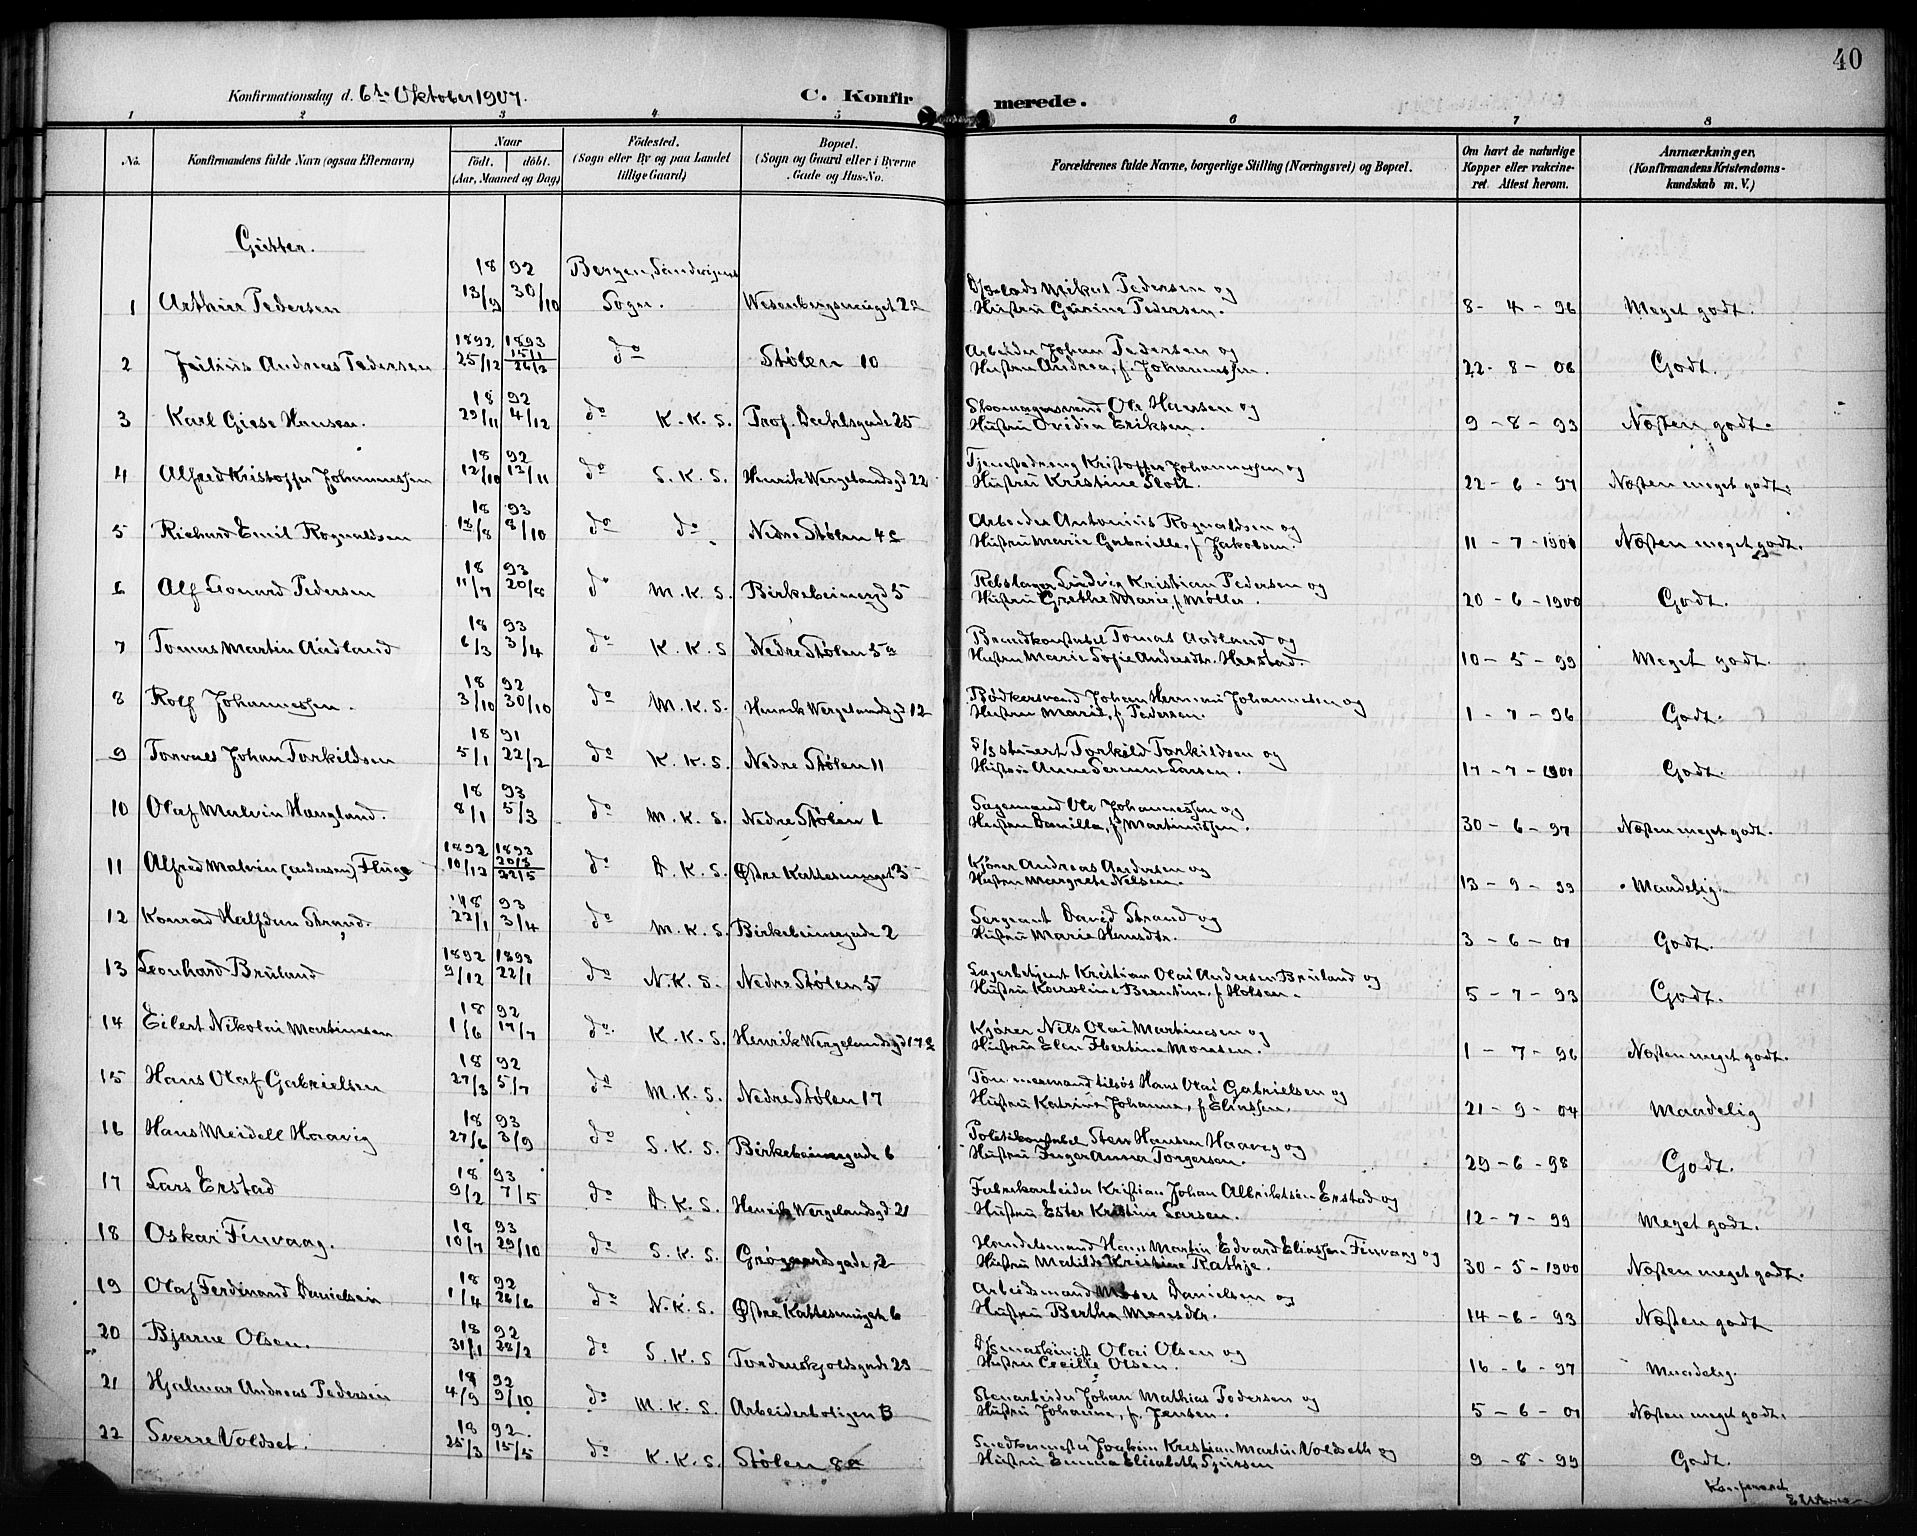 40
Konfirmationsdag d. 6te Oktober 1907.
C. Konfirmerede.
1 2 3 4 5 6 7 8
No.
Konfirmandens fulde Navn (ogsaa Efternavn)
Naar
født. døbt.
(Aar, Maaned og Dag)
Fødested.
(Sogn eller By og paa Landet
tillige Gaard)
Bopæl.
(Sogn og Gaard eller i Byerne
Gade og Hus-No.
Forældrenes fulde Navne, borgerlige Stilling (Næringsvei) og Bopæl.
Om havt de naturlige
Kopper eller vakcine-
ret. Attest herom.
Anmærkninger.
(Konfirmandens Kristendoms-
kundskab m. V.)
Gutter.
1 Arthur Pedersen 1892 13/9 30/10 Bergen, Sandvigens Sogn. Wesenbergsmuget 2a
Mikal Pedersen og
Hustru Gurine Pedersen. 8-4-96 Meget godt.
2 Julius Andreas Pedersen 1892 25/12 1893 15/1 26/2 do Stølen 10
Arbeider Johan Pedersen og
Hustru Andrea, f. Johannessen. 22-8-06 Godt.
3 Karl Giese Hansen. 1892 29/11 4/12 do K.K.S. Prof. Dahlsgade 25
Skomagersvend Ole Hansen og
Hustru Ovidia Eriksen. 9-8-93 Næsten godt.
4 Alfred Kristoffer Johannessen 1892 12/10 13/11 do S.K.S. Henrik Wergelandsgd 22
Tjenestedreng Kristoffer Johannessen og
Hustru Kristine Flolt. 22-6-97 Næsten meget godt.
5 Richard Emil Rognaldsen 1893 18/8 8/10 do do. Nedre Stølen 4c
Arbeider Antonius Rognaldsen og
Hustru Marie Gabrielle, f. Jakobsen. 11-7-1901 Næsten meget godt.
6 Alf Leonard Pedersen 1893 11/7 20/8 do M.K.S. Birkebeinergd 5
Rebslager Ludvig Kristian Pedersen og
Hustru Grethe Marie, f. Møller. 20-6-1900 Godt.
7 Tomas Martin Aadland 1893 6/3 3/4 do K.K.S Nedre Stølen 5a
Brandkonstabel Tomas Aadland og
Hustru Marie Sofie Andersdtr. Herstad. 10-5-99 Meget godt.
8 Rolf Johannessen. 1892 3/10 30/10 do M.K.S. Henrik Wergelandsgd 12
Bødkersvend Johan Herman Johannesen og
Hustru Marie, f. Pedersen. 1-7-96 Godt.
9 Torvald Johan Torkildsen 1891 5/1 22/2 do K.K.S. Nedre Stølen 11
Torkild Torkildsen og
Hustru Anne Larsen. 17-7-1901 Godt.
10 Olaf Malvin Haugland. 1893 8/1 5/3 do M.K.S. Nedre Stølen 1
Sagemand Ole Johannessen og
Hustru Danille, f. Martinussen. 30-6-97 Næsten meget godt.
11 Alfred Malvin (Andersen) Fluge 1892 10/12 1893 20/3 22/5 do D.K.S. Østre Kattesmuget 3
Kjører Andreas Andersen og
Hustru Margrete Nelsen. 13-9-99 Maadelig.
12 Konrad Halfdan Strand. 1893 22/1 3/4 do M.K.S. Birkebeinergade 2
Sergeant David Strand og
Hustru Marie Hansdtr. 3-6-01 Godt.
13 Leonhard Bruland 1892 9/12 1893 22/1 do N.K.S. Nedre Stølen 5
Lagerbetjent Kristian Olai Andersen Bruland og
Hustru Karoline Berntine, f. Holsen. 5-7-93 Godt.
14 Eilert Nikolai Martinsen 1892 1/6 17/7 do. K.K.S. Henrik Wergelandsgd 17a
Kjører Nils Olai Martinesen og
Hustru Elen Ibertine Monsen. 1-7-96 Næsten meget godt.
15 Hans Olaf Gabrielsen 1892 27/3 5/7 do M.K.S. Nedre Stølen 17
Tømmermand Hans Olai Gabrielsen og
Hustru Katrine Johanna, f. Eliassen. 21-9-04 Maadelig
16 Hans Meidell Haavig 1893 27/6 3/9 do S.K.S. Birkebeinergade 6
Politikonstabel Sten Hansen Haavig og
Hustru Inger Anna Torgersen. 29-6-98 Godt.
17 Lars Erstad 1893 9/2 7/5 do D.K.S. Henrik Wergelandsgd 21
Fabrikarbeider Kristian Johan Albriktsen Erstad og
Hustru Ester Kristine Larsen. 12-7-99 Meget godt.
18 Oskar Finvaag. 1893 10/7 29/10 do S.K.S. Grøgaardsgade 2
Handelsmand Hans Martin Edvard Eliassen Finvaag og
Hustru Matilde Kristine Rathje. 30-5-1900 Næsten meget godt.
19 Olaf Ferdinand Danielsen 1892 1/4 26/6 do N.K.S. Østre Kattesmuget 6
Arbeidsmand Moses Danielsen og
Hustru Bertha Monsdtr. 14-6-93 Næsten godt
20 Bjarne Olsen. 1892 31/1 28/2 do S.K.S Tordenskjoldsgade 23
Olai Olsen og
Hustru Cecilie Olsen. 16-6-97 Maadelig.
21 Hjalmar Andreas Pedersen 1892 4/9 9/10 do M.K.S. Arbeiderboligen B
Stenarbeider Johan Mathias Pedersen og
Hustru Johanne, f. Jensen. 5-6-01 Næsten meget godt.
22 Sverre Voldset. 1892. 25/3 15/5 do K.K.S. Stølen 8a
Snedkermester Joakim Kristian Martin Voldseth og
Hustru Emma Elisabeth Sjursen 9-8-99 Godt.